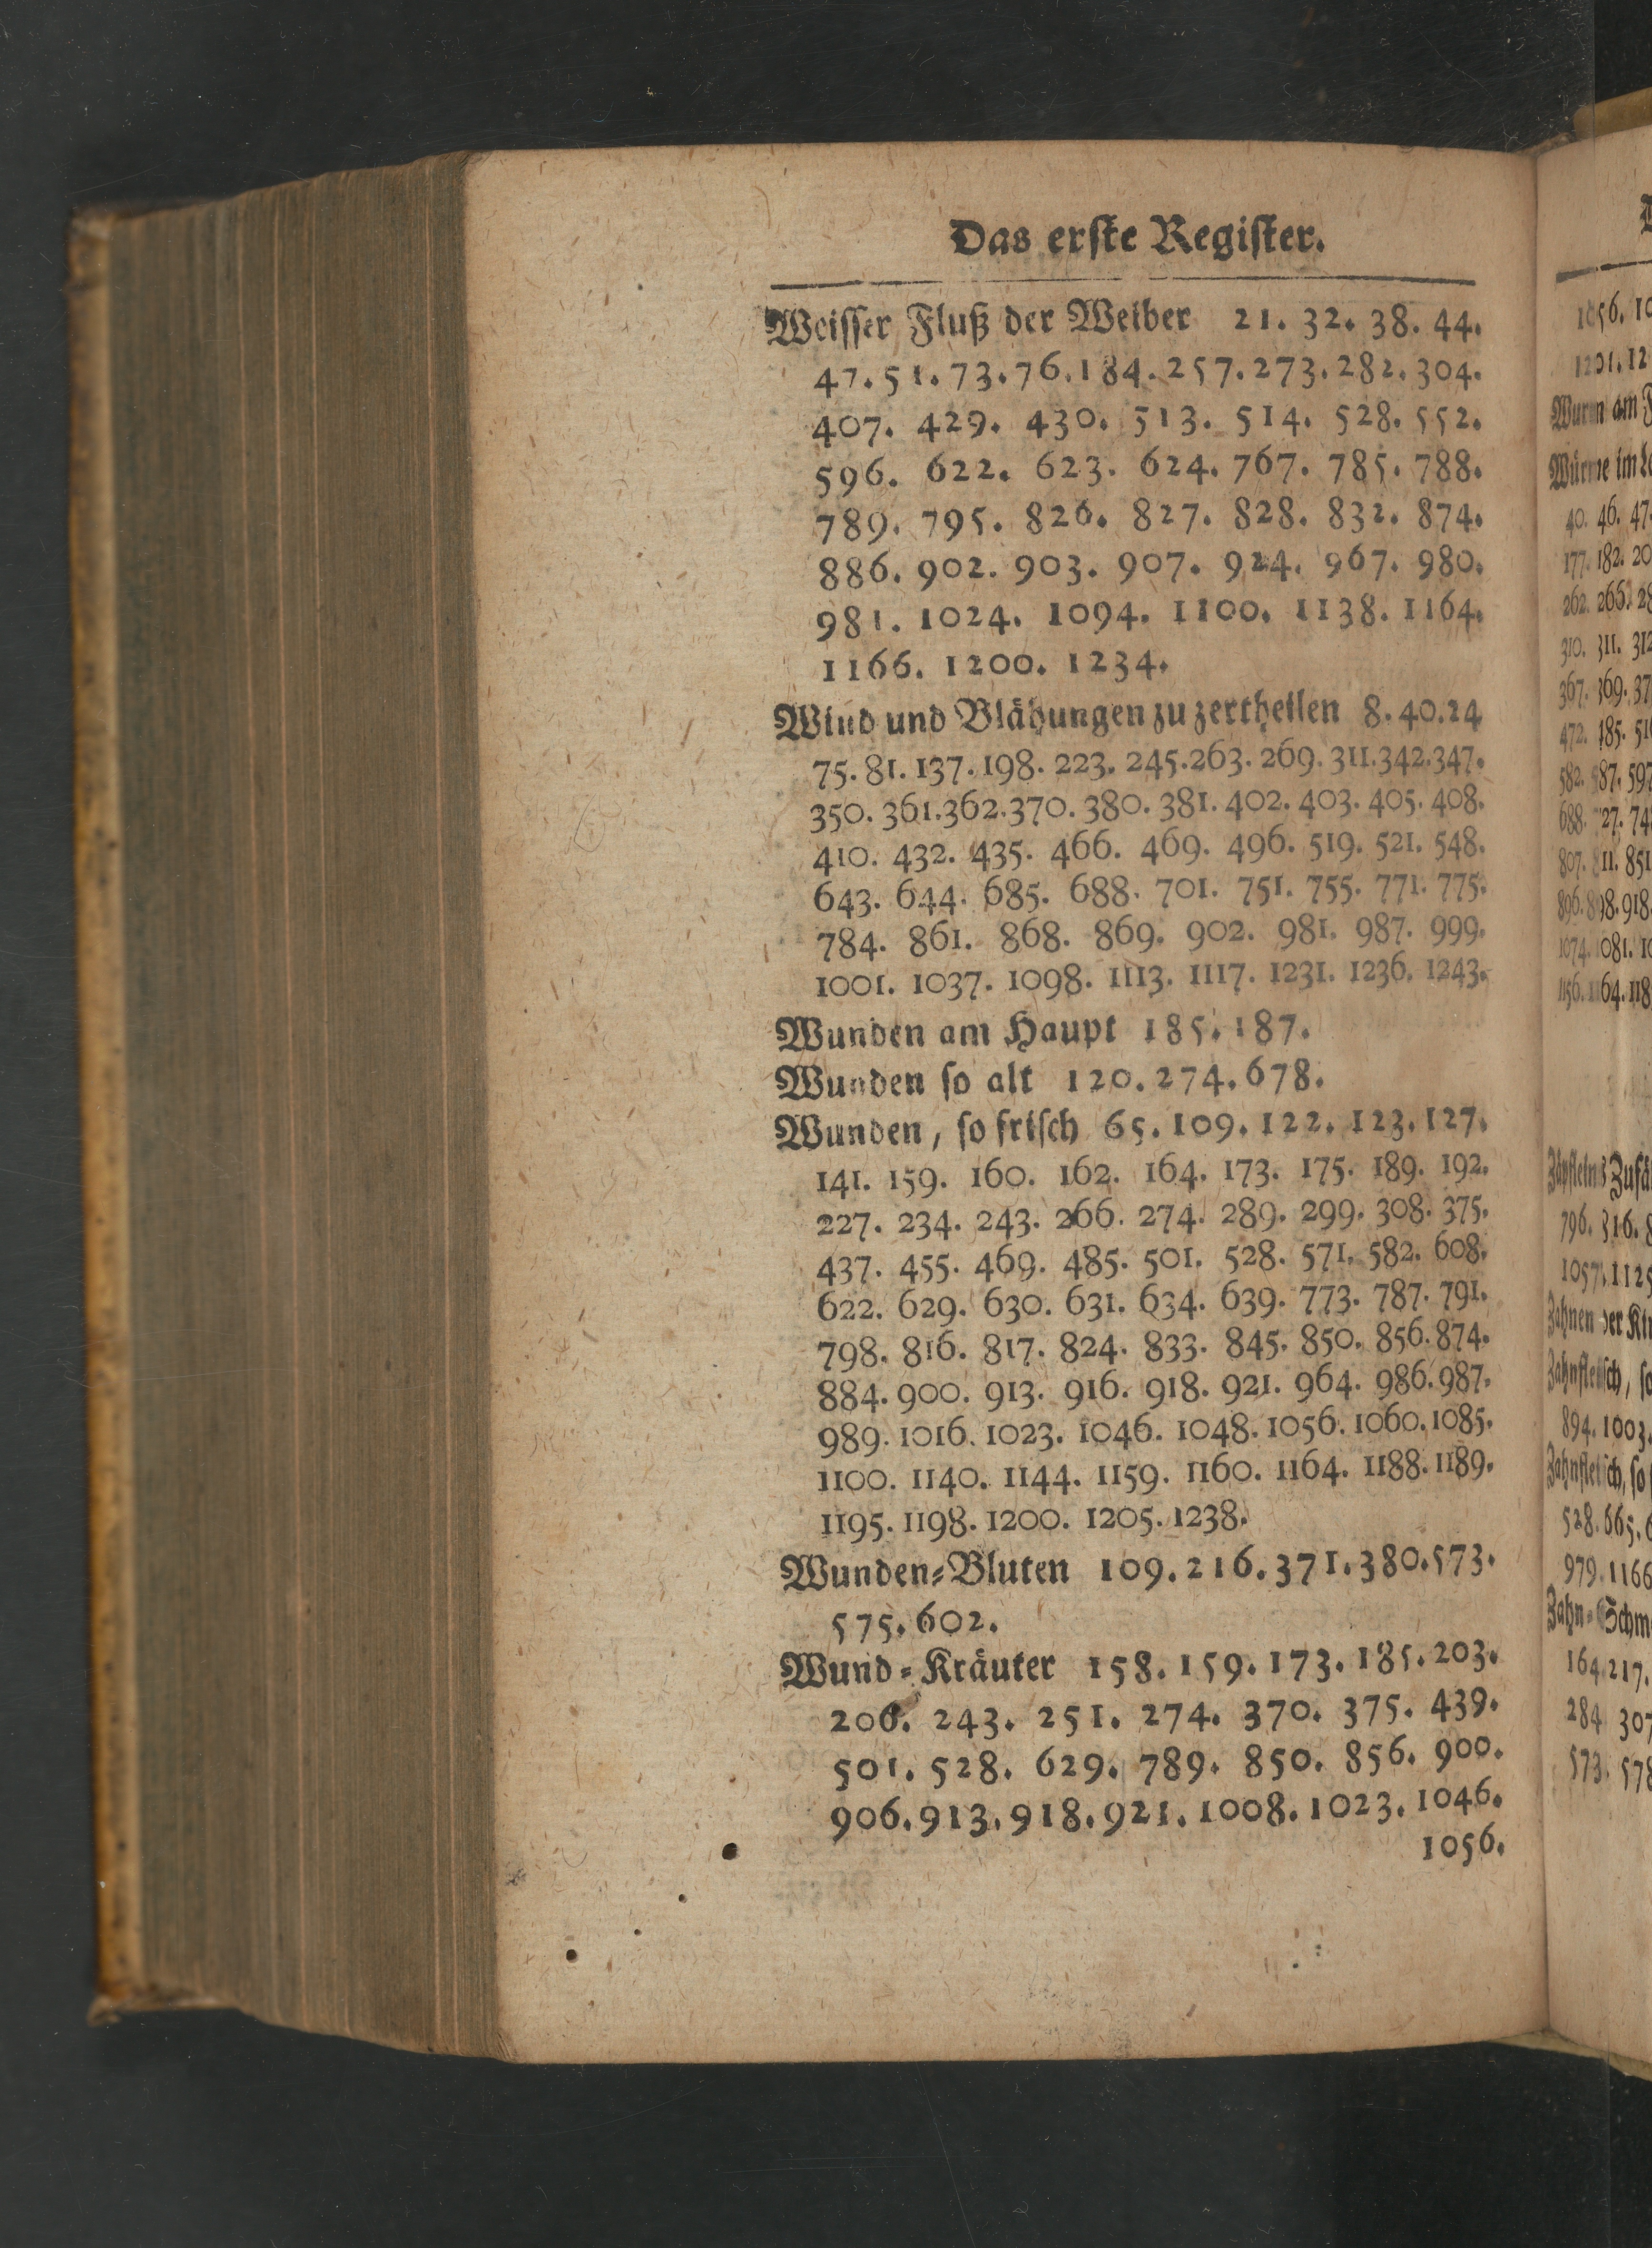 Das erste Register.
Weisser Fluß der Weiber 21. 32. 38. 44.
47. 51. 73. 76. 184. 257. 273. 282. 304.
407. 429. 430. 513. 514. 528. 552.
596. 622. 623. 624. 767. 785. 788.
789. 795. 826. 827. 828. 832. 874.
886. 902. 903. 907. 924. 967. 980.
981. 1024. 1094. 1100. 1138. 1164.
1166. 1200. 1234.
Wind und Blähungen zu zertheilen 8. 40. 24
75. 81. 137. 198. 223. 245. 263. 269. 311. 342. 347.
350. 361. 362. 370. 380. 381. 402. 403. 405. 408.
410. 432. 435. 466. 469. 496. 519. 521. 548.
643. 644. 685. 688. 701. 751. 755. 771. 775.
784. 861. 868. 869. 902. 981. 987. 999.
1001. 1037. 1098. 1113. 1117. 1231. 1236. 1243.
Wunden am Haupt 185. 187.
Wunden so alt 120. 274. 678.
Wunden, so frisch 65. 109. 122. 123. 127.
141. 159. 160. 162. 164. 173. 175. 189. 192.
227. 234. 243. 266. 274. 289. 299. 308. 375.
437. 455. 469. 485. 501. 528. 571. 582. 608.
622. 629. 630. 631. 634. 639. 773. 787. 791.
798. 816. 817. 824. 833. 845. 850. 856. 874.
884. 900. 913. 916. 918. 921. 964. 986. 987.
989. 1016. 1023. 1046. 1048. 1056. 1060. 1085.
1100. 1140. 1144. 1159. 1160. 1164. 1188. 1189.
1195. 1198. 1200. 1205. 1238.
Wunden-Bluten 109. 216. 371. 380. 573.
575. 602.
Wund-Kräuter 158. 159. 173. 185. 203.
206. 243. 251. 274. 370. 375. 439.
501. 528. 629. 789. 850. 856. 900.
906. 913. 918. 921. 1008. 1023. 1046.
1056.